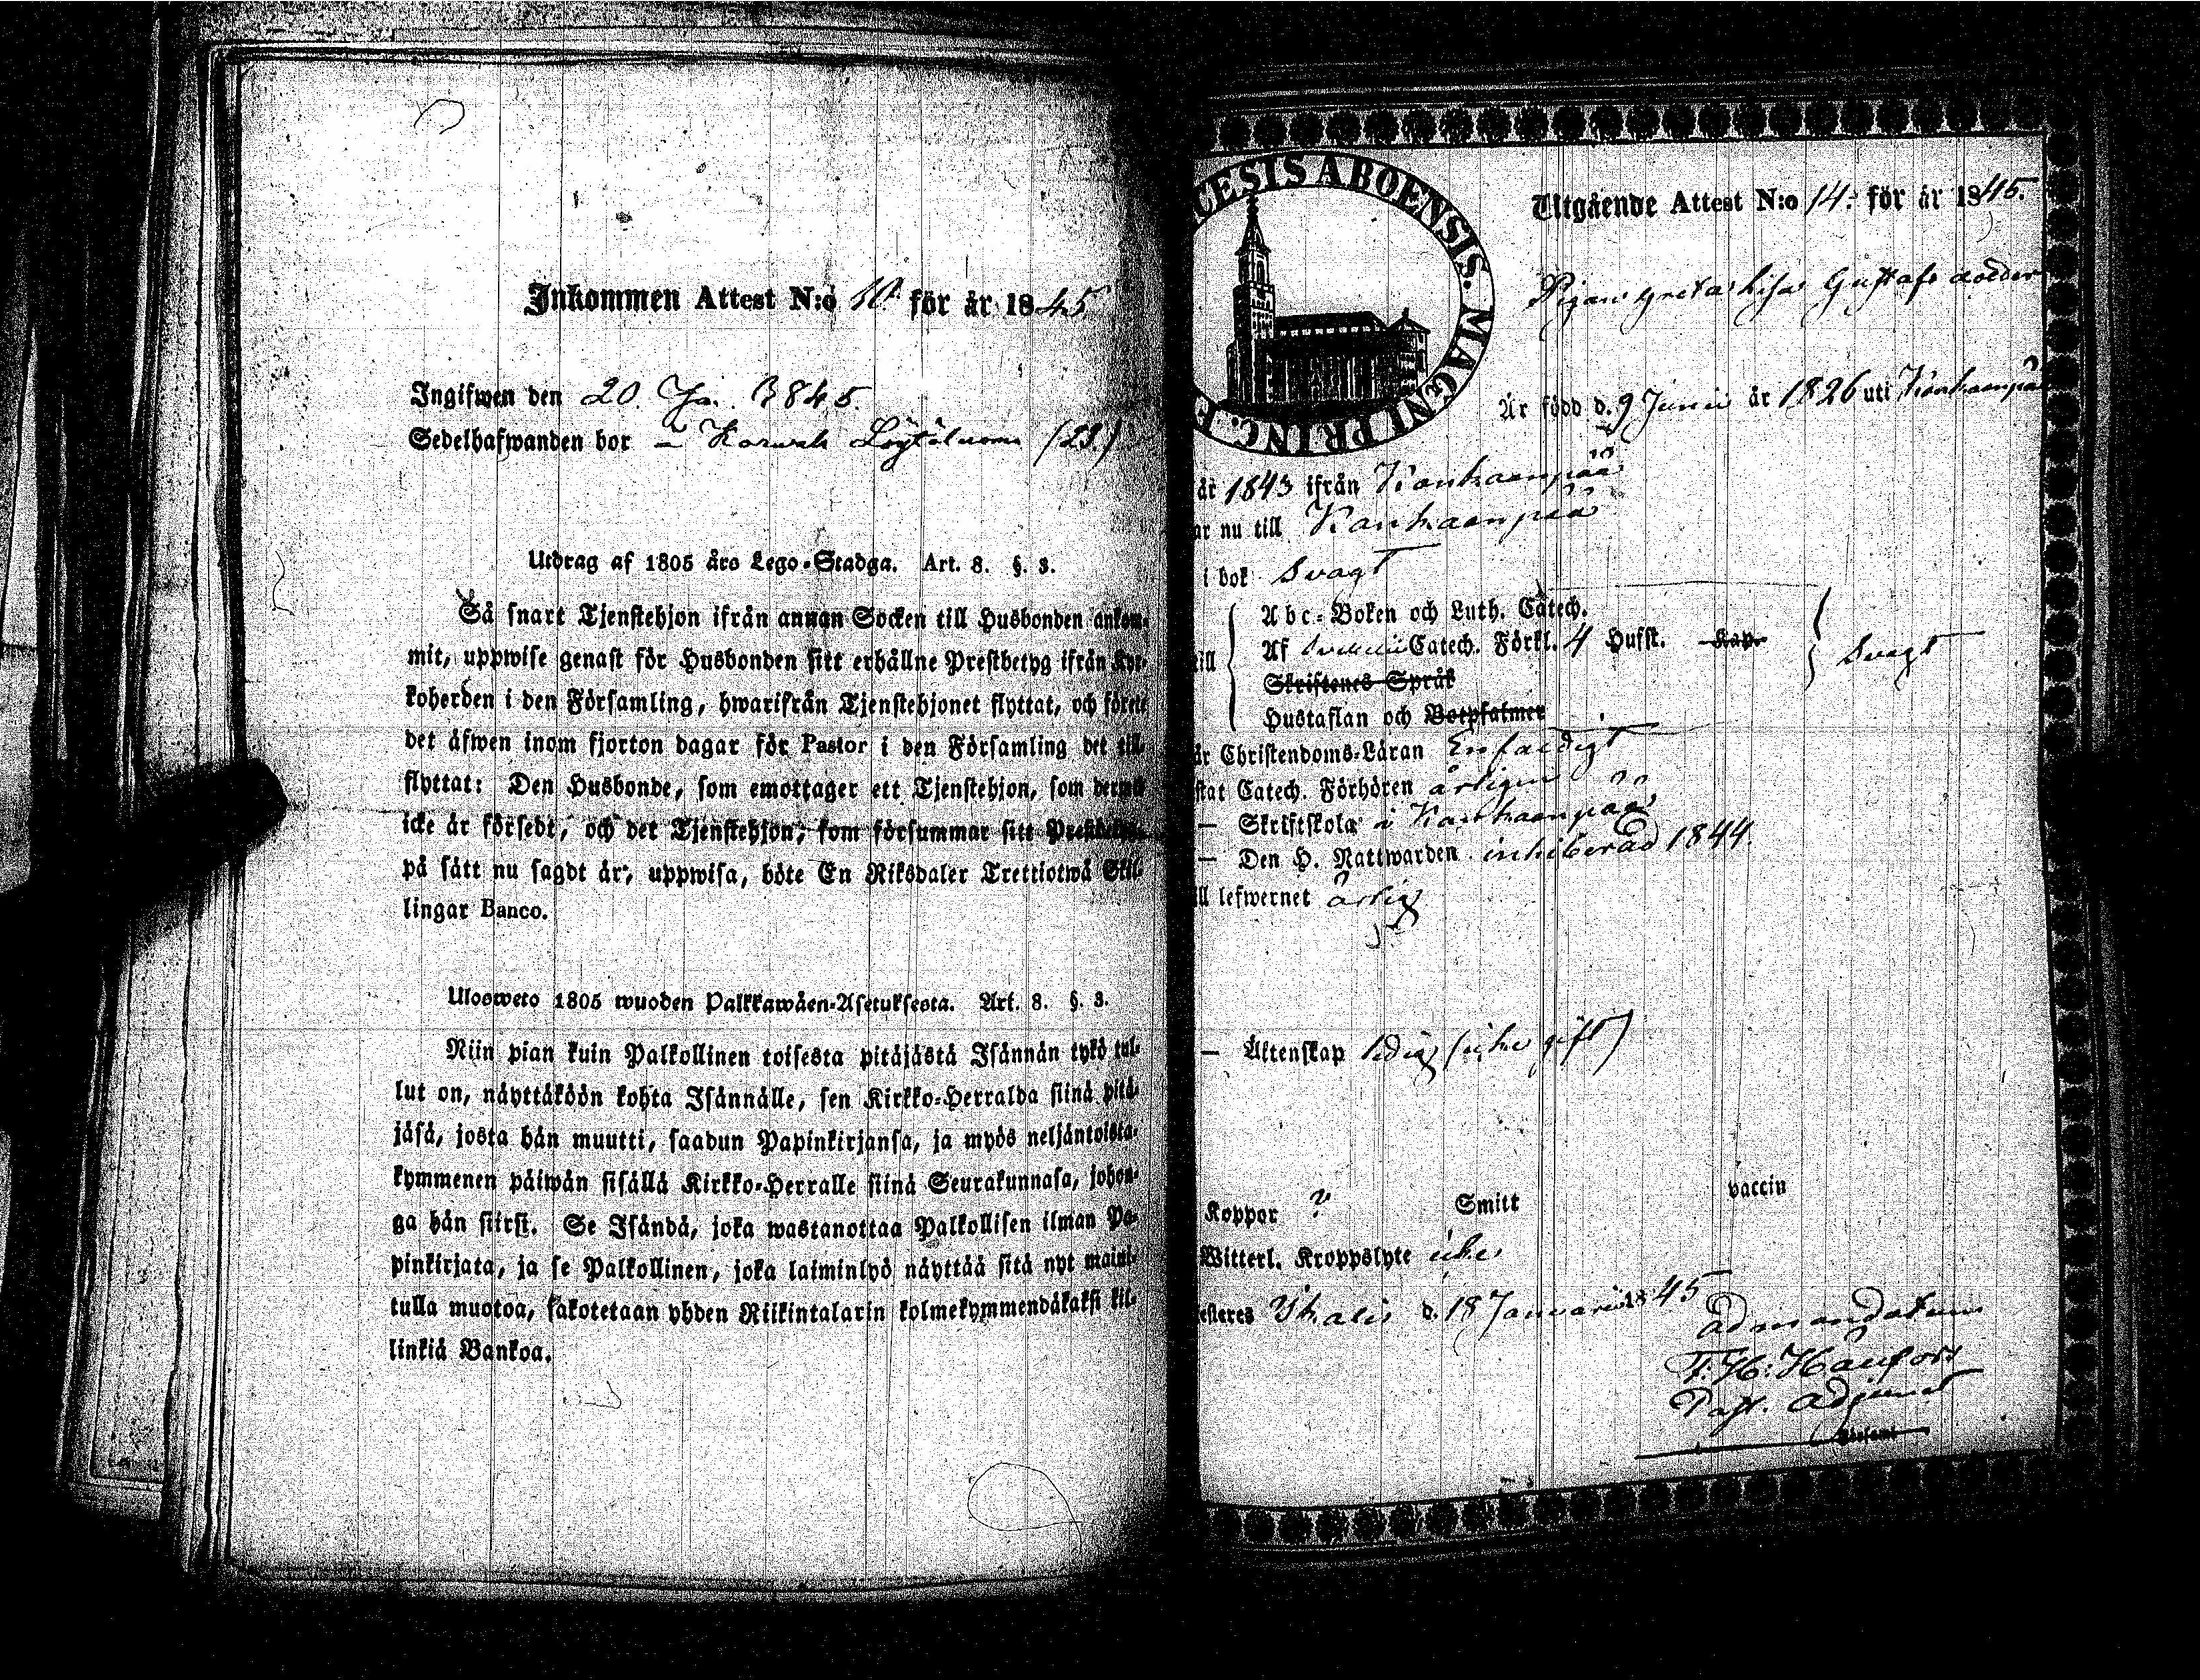 Inkommen Attest N:o 10. för år 1845
Ingifwen den 20. Ja. 1845.
Sedelhafwanden bor (23.)
Utdrag af 1805 års Lego-Stadga. Art. 8. §. 3.
Så snart Tjenstehjon ifrån annan Socken till Husbonden ankom-
mit, uppwise genast för Husbonden sitt erhållne Prestbetyg ifrån Kyr-
koherden i den Församling, hwarifrån Tjenstehjonet flyttat, och förete
det äfwen inom fjorton dagar för Pastor i den Församling det till
flyttat: Den Husbonde, som emottager ett Tjenstehjon, som dermed
icke är försedt, och det Tjenstehjon, som försummar sitt
på sätt nu sagdt är, uppwisa, böte En Riksdaler Trettiotwå Skil-
lingar Banco.
Ulosweto 1805 wuoden Palkkawäen-Asetuksesta. Art. 8. §. 3.
Niin pian kuin Palkollinen toisesta pitäjästä Isännän tykö tul-
lut on, näyttäköön kohta Isännälle, sen Kirkko-Herralda siinä pitä-
jäsä, josta hän muutti, saadun Papinkirjansa, ja myös neljäntoista-
kymmenen päiwän sisällä Kirkko-Herralle siinä Seurakunnasa, johon-
ga hän siirst. Se Isändä, joka wastanottaa Palkollisen ilman Pa-
pinkirjata, ja se Palkollinen, joka laiminlyö näyttää sitä nyt maini-
tulla muotoa, sakotetaan yhden Riikintalarin kolmekymmendäkaksi kil-
linkiä Bankoa.
CESIS ABOENSIS. MAGNI PRINC. F
Utgående Attest N:o 14. för år 1845.
Pigan Greta Lisa Gustafs dotter
Är född d. 9 Junii år 1826 uti Kankaanpää
år 1843 ifrån Kankaanpää
ar nu till Kankaanpää
i bok svagt
Abc-Boken och Luth. Catech.
till Af Catech. Förkl. 4 Hufst. Kap. svagt
Skriftenes Språk
Hustaflan och Botpsalmer
är Christendoms-Läran Enfaldigt
stat Catech. Förhören årligen
— Skriftskola i Kankaanpää
— Den H. Nattwarden inhiberad 1844.
ll lefwernet ärlig
— Äktenskap ledig (icke gift)
Koppor ? Smitt vaccin
Witterl. Kroppslyte icke
esteres Ikalis d. 18 Januarii 1845
ad mandatum
Past. Adjunct